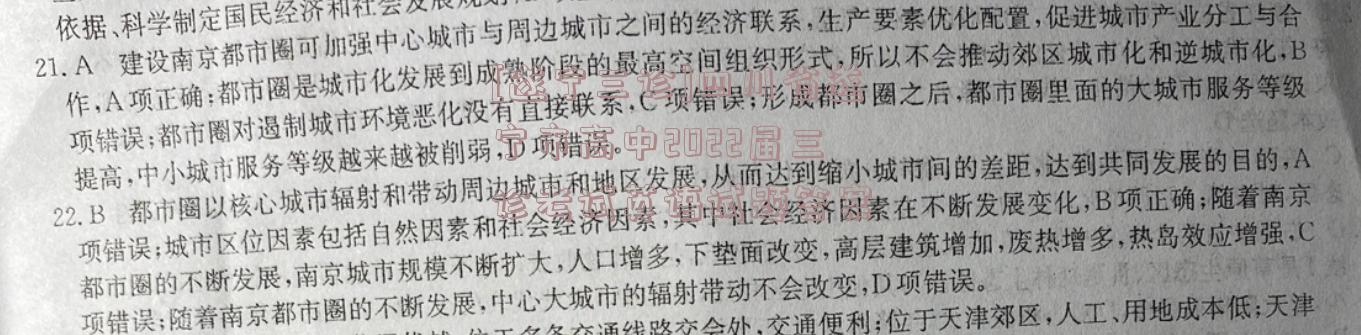 依据、科学制定国民经济和社会发展规划
21. A 建设南京都市圈可加强中心城市与周边城市之间的经济联系,生产要素优化配置,促进城市产业分工与合
作,A项正确;都市圈是城市化发展到成熟阶段的最高空间组织形式,所以不会推动郊区城市化和逆城市化,B
项错误;都市圈对遏制城市环境恶化没有直接联系,C项错误;形成都市圈之后,都市圈里面的大城市服务等级
提高,中小城市服务等级越来越被削弱,D项错误。
22. B 都市圈以核心城市辐射和带动周边城市和地区发展,从而达到缩小城市间的差距,达到共同发展的目的,A
项错误;城市区位因素包括自然因素和社会经济因素,其中社会经济因素在不断发展变化,B项正确;随着南京
都市圈的不断发展,南京城市规模不断扩大,人口增多,下垫面改变,高层建筑增加,废热增多,热岛效应增强,C
项错误;随着南京都市圈的不断发展,中心大城市的辐射带动不会改变,D项错误。
位于多条交通线路交会处,交通便利;位于天津郊区,人工、用地成本低;天津
[遂宁三诊]四川省遂
宁市高中2022届三